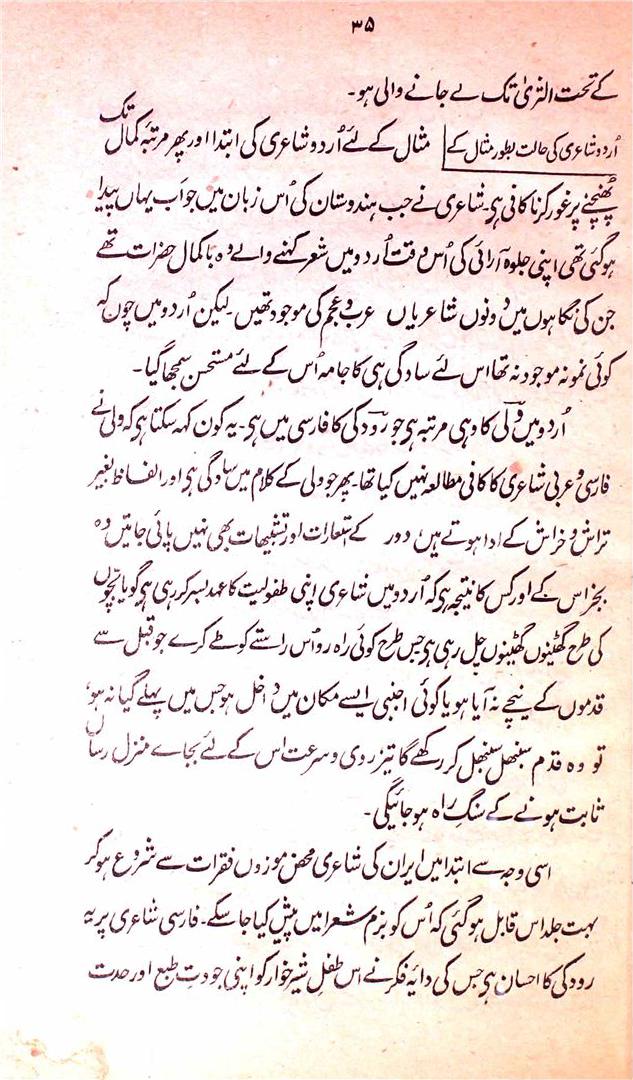 ۳۵
کے تحت الثریٰ تک لے جانے والی ہو۔
اُردو شاعری کی حالت بطور مثال کے مثال کے لئے اُردو شاعری کی ابتدا اور پھر مرتبۂ کمال تک
پُھنچنے پر غور کرنا کافی ہی۔ شاعری نے جب ہندوستان کی اُس زبان میں جو اَب یہاں پیدا
ہوگئی تھی اپنی جلوہ آرائی کی اُس وقت اُردو میں شعر کہنے والے وہ باکمال حضرات تھے
جن کی نگاہوں میں دونوں شاعریاں عرب و عجم کی موجود تھیں۔ لیکن اُردو میں چونکہ
کوئی نمونہ موجود نہ تھا اس لئے سادگی ہی کا جامہ اُس کے لئے مستحسن سمجھا گیا۔
اُردو میں ولی کا وہی مرتبہ ہی جو رودکی کا فارسی میں ہی۔ یہ کون کہہ سکتا ہی کہ ولی نے
فارسی و عربی شاعری کا کافی مطالعہ نہیں کیا تھا۔ پھر جو ولی کے کلام میں سادگی ہی اور الفاظ بغیر
تراش و خراش کے ادا ہوتے ہیں دور کے استعارات اور تشبیہات بھی نہیں پائی جاتیں وہ
بجز اس کے اور کس کا نتیجہ ہی کہ اُردو میں شاعری اپنی طفولیت کا عہد بسر کر رہی ہی گویا بچوں
کی طرح گھٹنیوں گھٹنیوں چل رہی ہی جس طرح کوئی راہ رو اُس راستے کو طے کرے جو قبل سے
قدموں کے نیچے نہ آیا ہو یا کوئی اجنبی ایسے مکان میں داخل ہو جس میں پہلے گیا نہ ہو،
تو وہ قدم سنبھل سنبھل کر رکھے گا تیز روی و سرعت اس کے لئے بجاے منزل رساں
ثابت ہونے کے سنگِ راہ ہو جائیگی۔
اسی وجہ سے ابتدا میں ایران کی شاعری محض موزوں فقرات سے شروع ہو کر
بہت جلد اس قابل ہو گئی کہ اُس کو بزم شعرا میں پیش کیا جا سکے۔ فارسی شاعری پر یہ
رودکی کا احسان ہی جس کی دایۂ فکر نے اس طفلِ شیر خوار کو اپنی جودتِ طبع اور حدت